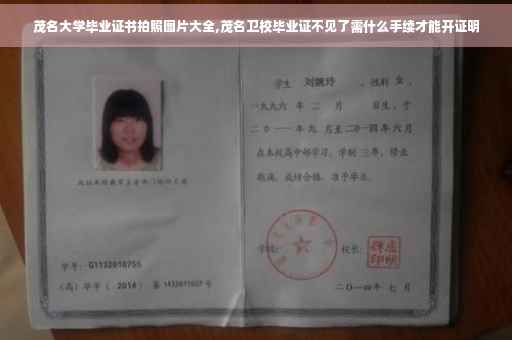 茂名大学毕业证书拍照图片大全,茂名卫校毕业证不见了需什么手续才能开证明
学生 刘婉玲 ,性别 女 ,
一九九六 年 二 月 日生,于
二〇一一年九 月至二〇一四年六月
在本校高中部学习,学制 三年,修业
期满,成绩合格,准予毕业。
学号: G1132010755
(高)毕字( 2014 )第 1432011027 号
学校:
校长:
二〇一四年 七 月